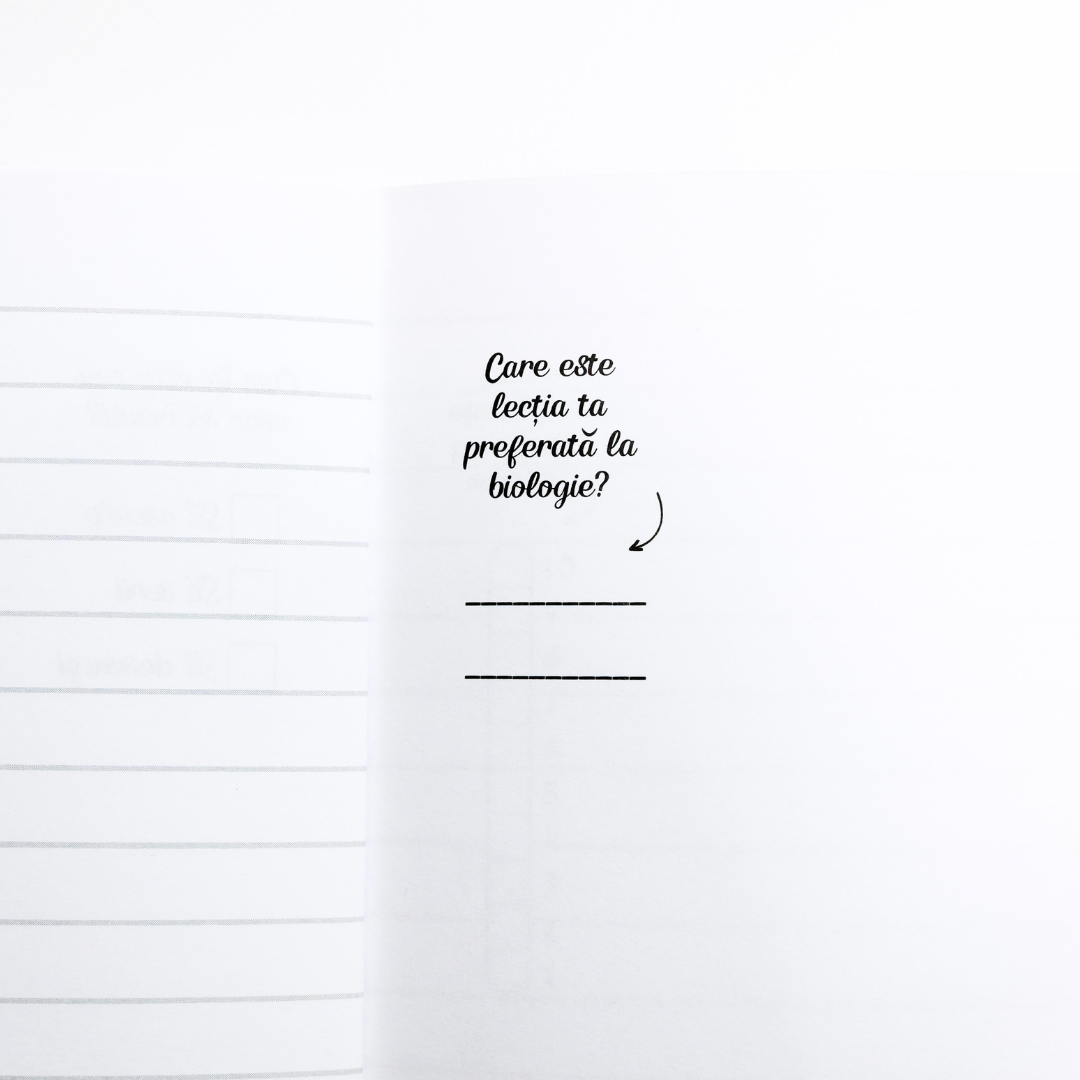 Care este
lecția ta
preferată la
biologie?